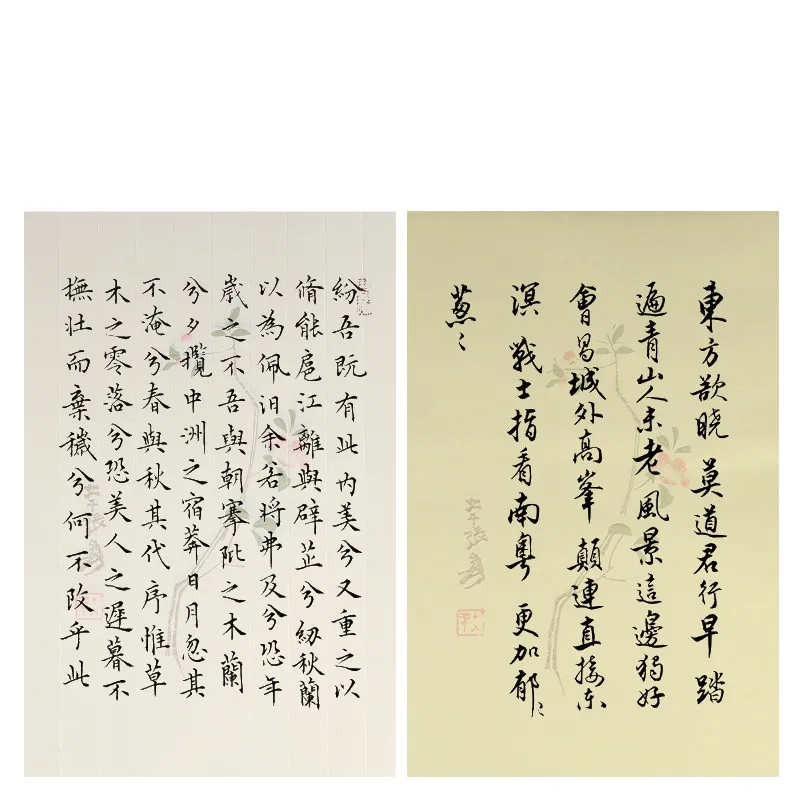 紛吾既有此內美兮又重之以
脩能扈江離與辟芷兮紉秋蘭
以為佩汩余若將弗及兮恐年
歲之不吾與朝搴阰之木蘭
兮夕攬中洲之宿莽日月忽其
不淹兮春與秋其代序惟草
木之零落兮恐美人之遲暮不
撫壯而棄穢兮何不改乎此
大千張爰
東方欲曉 莫道君行早 踏
遍青山人未老 風景這邊獨好
會昌城外高峯 顛連直接東
溟 戰士指看南粵 更加郁々
蔥々
大千張爰